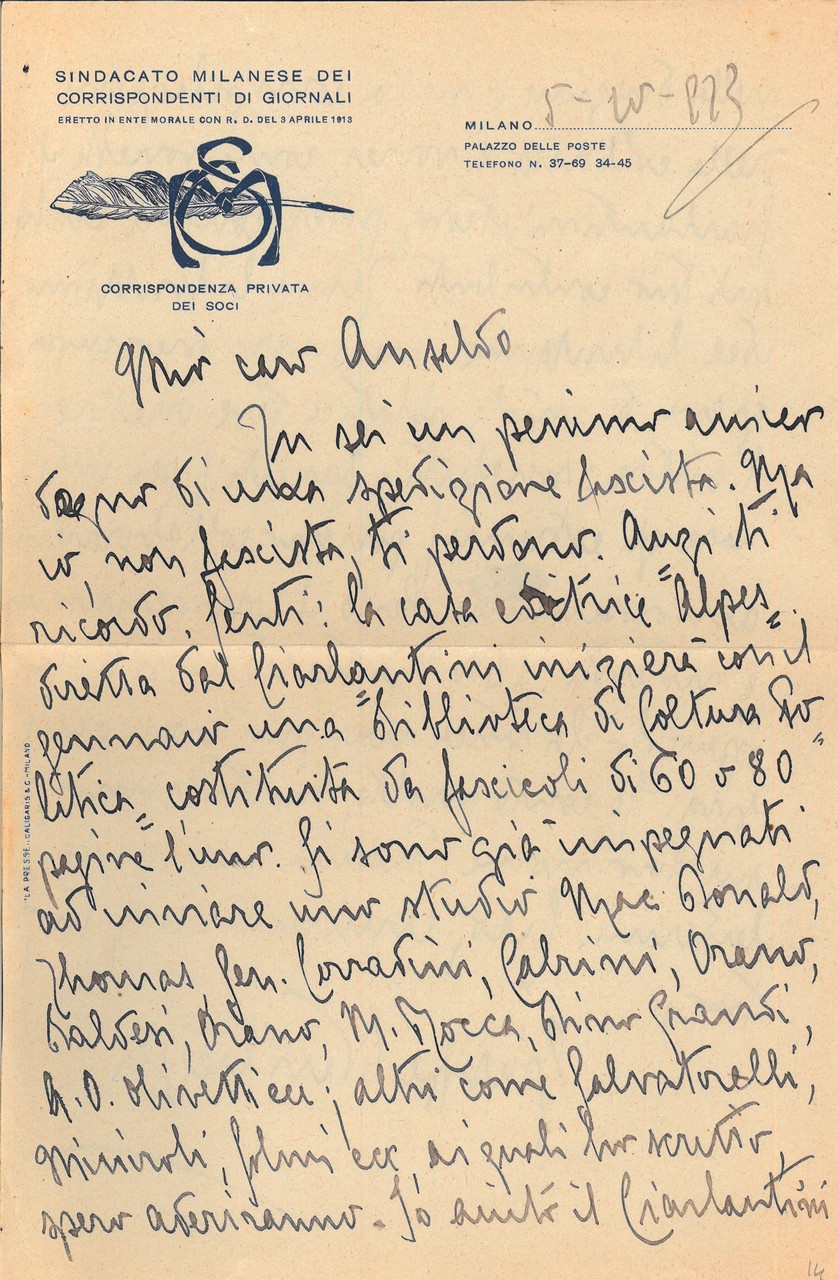 SINDACATO MILANESE DEI
CORRISPONDENTI DI GIORNALI
ERETTO IN ENTE MORALE CON R. D. DEL 3 APRILE 1913
CORRISPONDENZA PRIVATA
DEI SOCI
MILANO 5-10-923
PALAZZO DELLE POSTE
TELEFONO N. 37-69 34-45
Mio caro Ansaldo
Tu sei un pessimo amico
degno di una spedizione fascista. Ma
io, non fascista, ti perdono. Anzi ti
ricordo. Senti: la casa editrice "Alpes"
diretta dal Ciarlantini inizierà con il
gennaio una "Biblioteca di Coltura Po-
litica" costituita da fascicoli di 60 o 80
pagine l'uno. Si sono già impegnati
ad inviare uno studio Mac Donald,
Thomas, Gen. Corradini, Cabrini, Orano,
Baldesi, Orano, M. Rocca, Dino Grandi,
A. O. Olivetti ecc; altri come Salvatorelli,
Missiroli, Solmi ecc ai quali ho scritto,
spero aderiranno. Io aiuto il Ciarlantini
"LA PRESSE" CALIGARIS & C.-MILANO
14